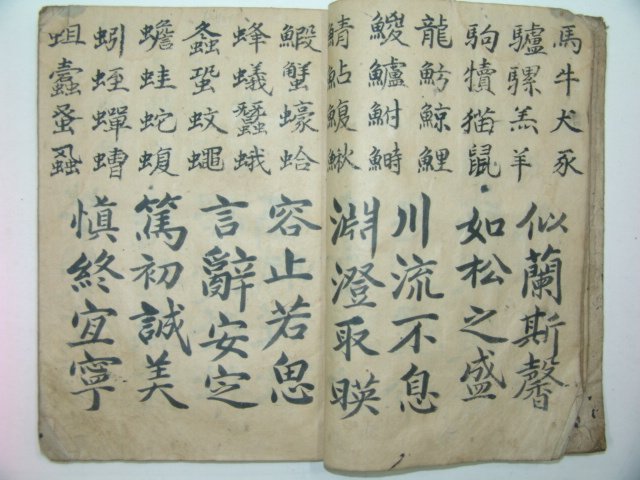 馬牛犬豕
驢騾羔羊
駒犢猫鼠
龍魴鯨鯉
鱸鮒鰣
鯖鮎鰒鰍
鰕蟹蠔蛤
蜂蟻蠶蛾
螽蛩蚊蠅
蟾蛙蛇蝮
蚓蛭蟬螬
蛆蠹蚤蝨
似蘭斯馨
如松之盛
川流不息
淵澄取暎
容止若思
言辭安定
篤初誠美
愼終宜寧